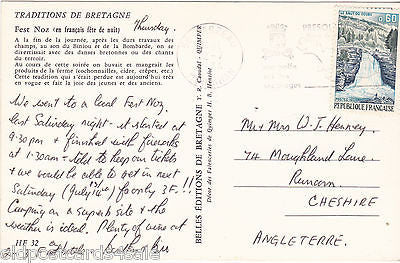 TRADITIONS DE BRETAGNE
Fest Noz (en français fête de nuit)
Thursday.
A la fin de la journée, après les durs travaux des
champs, au son du Biniou et de la Bombarde, on se
divertissait avec des danses bretonnes endiablées et
titubantes.
Au cours de cette soirée on buvait et mangeait les
produits de la ferme (cochonnailles, cidre, crêpes, etc.)
Cette tradition qui s'était perdue est aujourd'hui très en
vogue et fait la joie des jeunes et des anciens.
We went to a local Fest Noz
last Saturday night - it started at
9.30pm & finished with fireworks
at 1.30am - told to keep our tickets
& we would be able to get in next
Saturday (July 14th) for only 3F!!!
Camping on a superb site & the
weather is ideal. Plenty of wine at
HF 32
BELLES ÉDITIONS DE BRETAGNE
QUIMPER
Décor des Faïenceries de Quimper H. B. Henriot
LE SAUT DU DOUBS
0,60
RÉPUBLIQUE FRANÇAISE
Mr & Mrs W. J. Henney
74 Moughland Lane
Runcorn
CHESHIRE
ANGLETERRE.
oldpostcards4sale